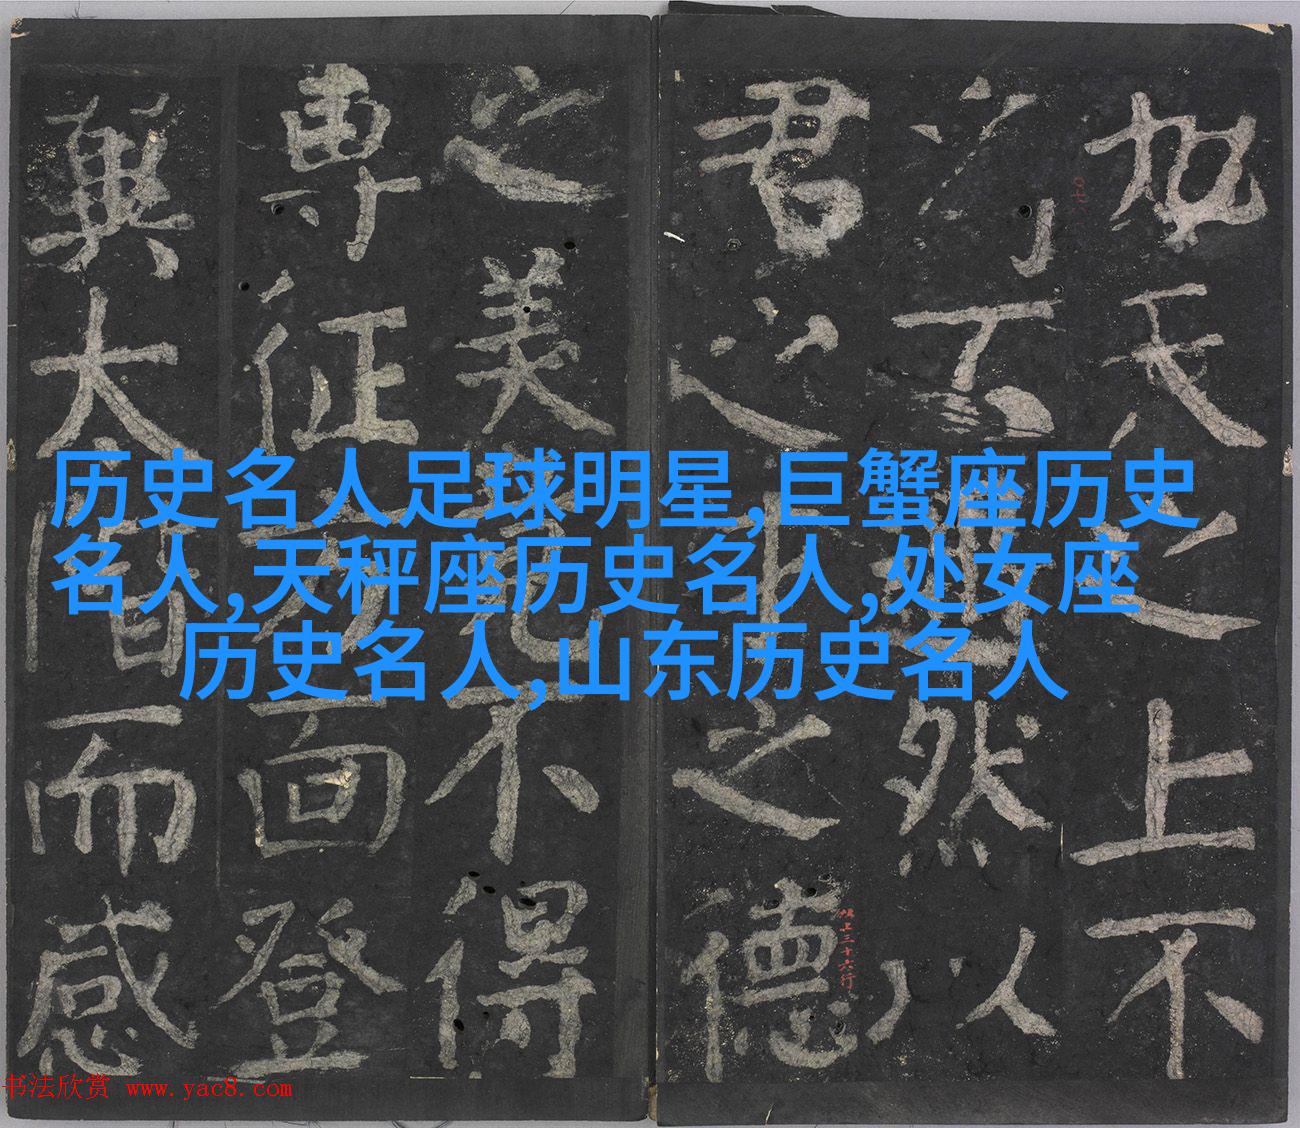 历史名人足球明星,巨蟹座历史
名人,天秤座历史名人,处女座
历史名人,山东历史名人
天之上不
然以
君之上之德
之美不得
專征方面登
太階而感
上三十六行
书法欣赏 www.yac8.com